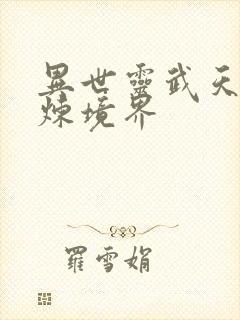 異世靈武天
煉境界
羅雪娟